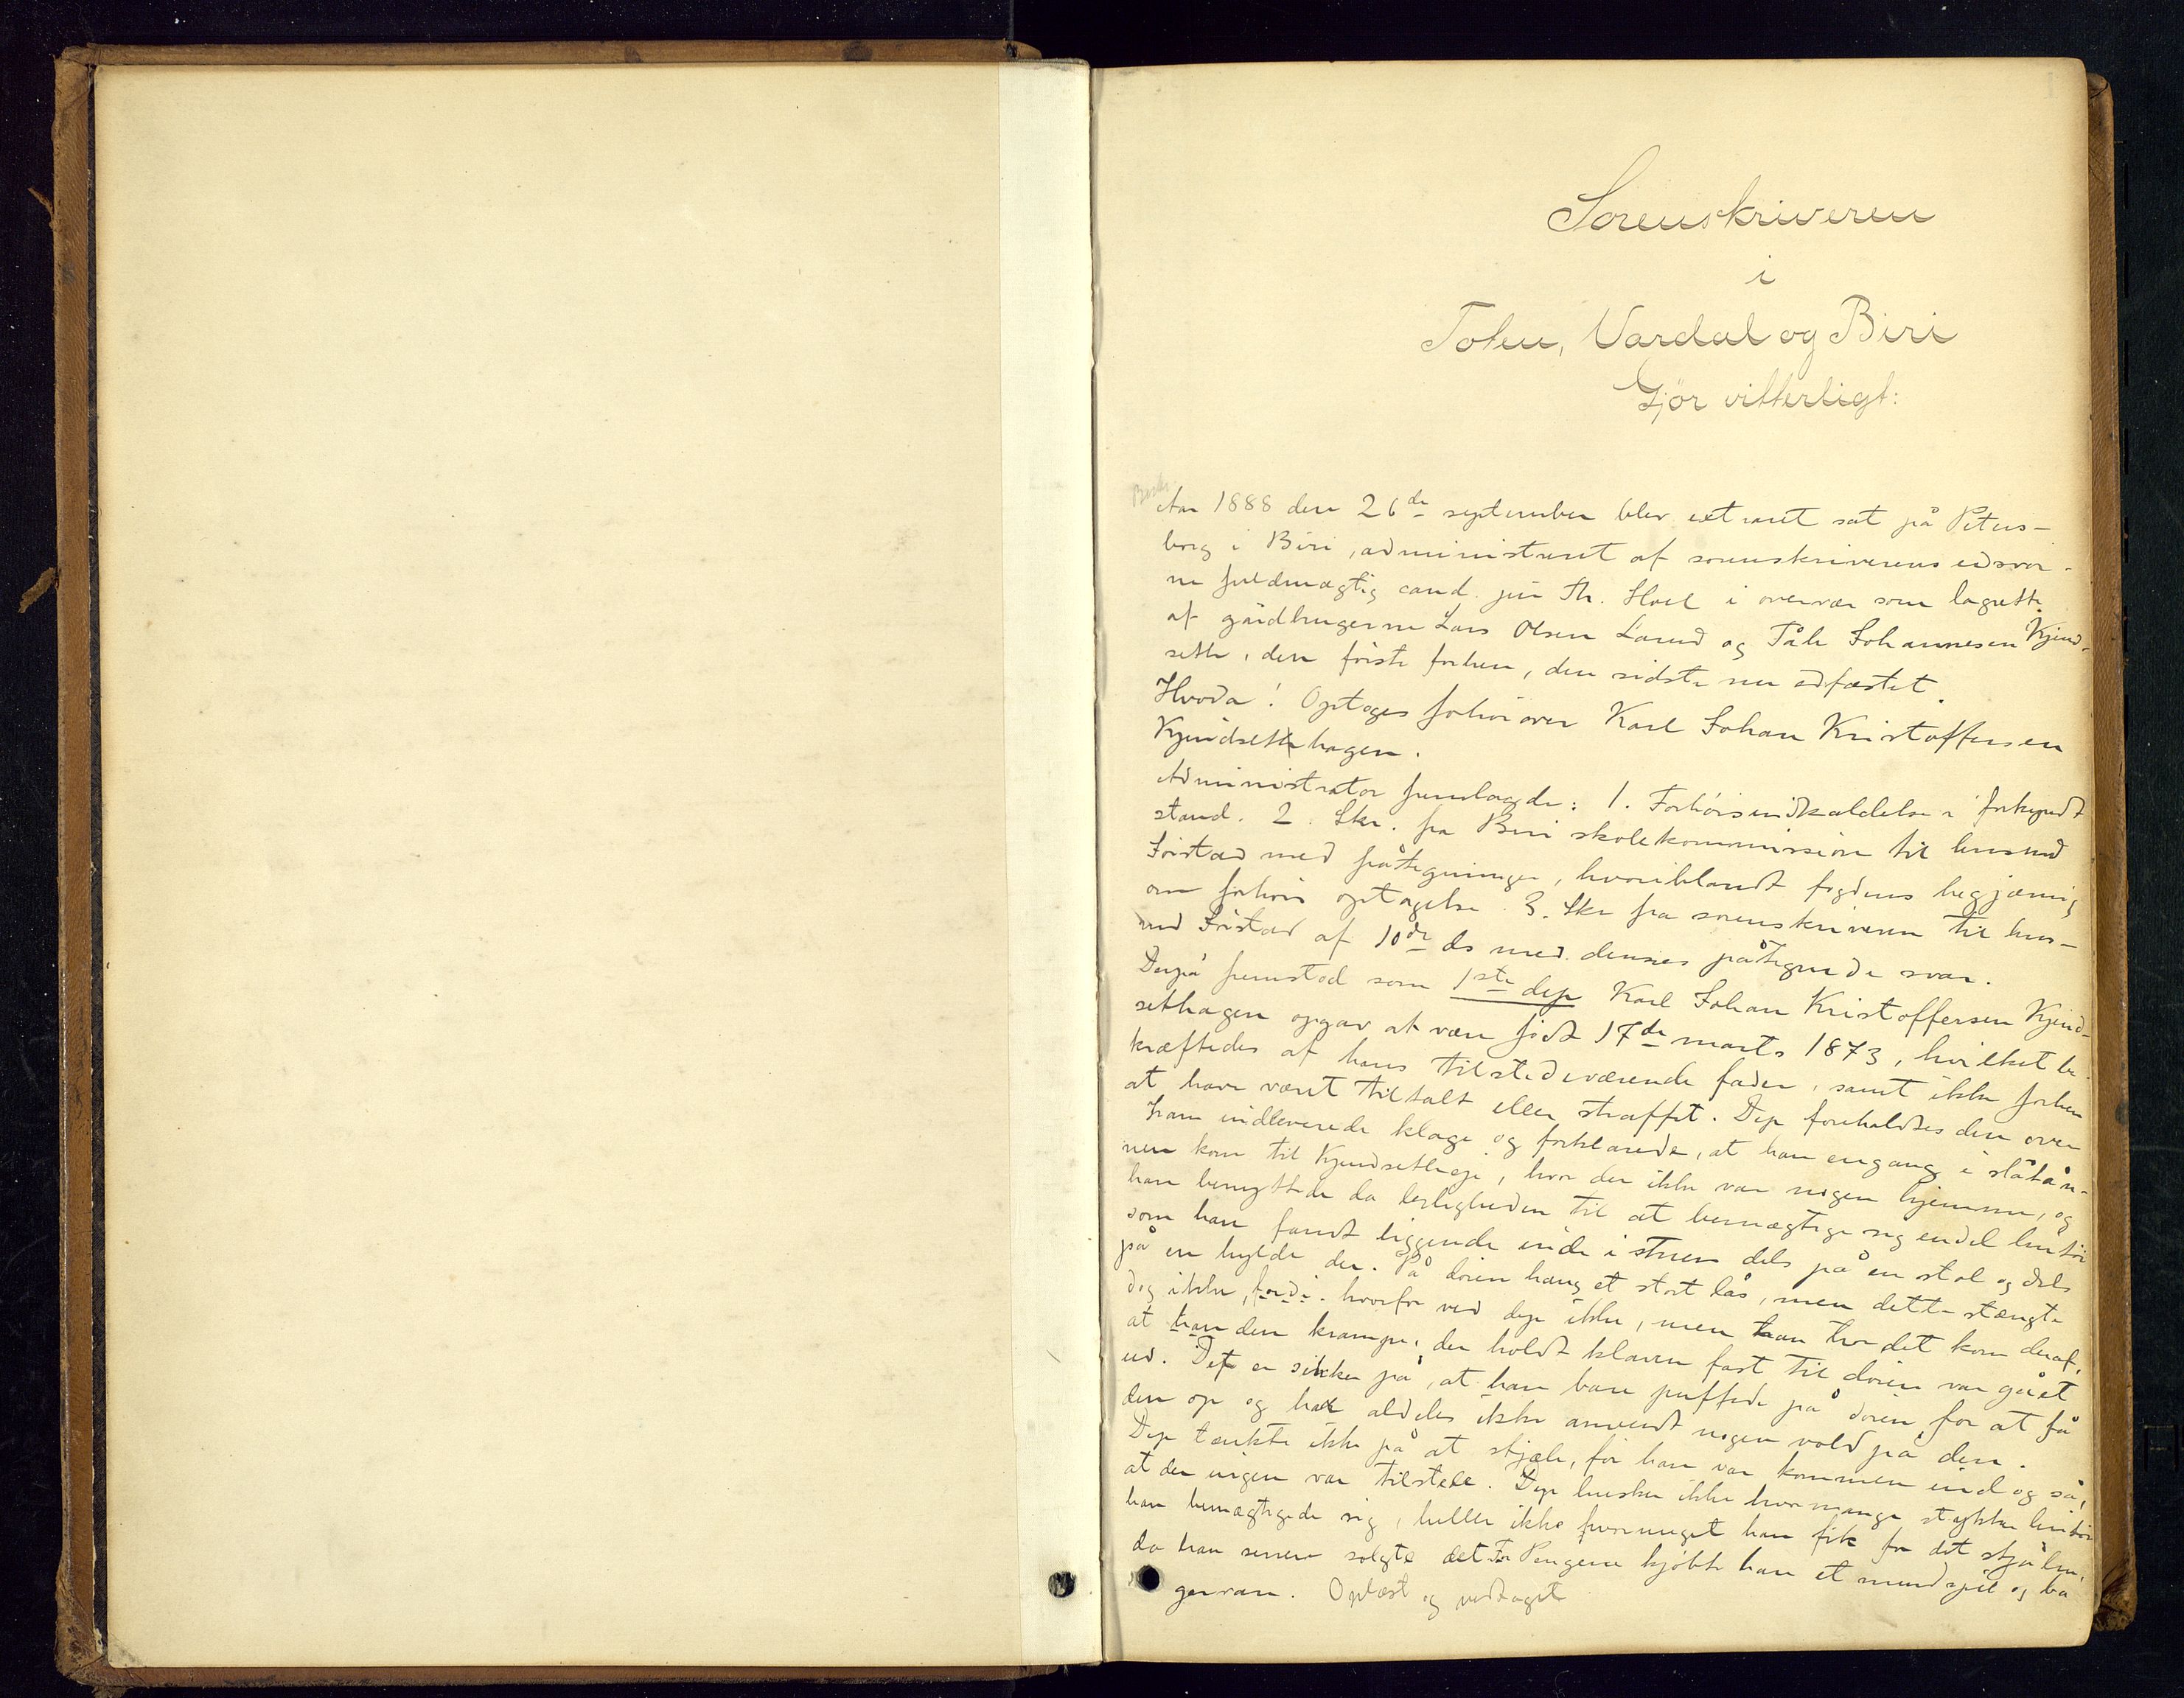 Sorenskriveren
i
Toten, Vardal og Biri
Gjør vitterligt:
Aar 1888 den 26de september blev extraret sat på Peters-
borg i Biri, administreret af sorenskriverens edsvor-
ne fuldmægtig cand. jur Th. Hoel i overvær som lagrette
af gårdbrugerne Lars Olsen Larud og Påle Johannesen Kjend-
seth, den første forhen, den sidste nu edfæstet.
Hvoda: Optoges forhör over Karl Johan Kristoffersen
Kjendsethhagen.
Administrator fremlagde: 1. Forhörsindkaldelse i forkyndt
stand. 2. Skr. fra Biri skolekommission til lensmd
Fristad med påtegninger, hvoriblandt fogdens begjæring
om forhörs optagelse. 3. Skr fra sorenskriveren til lens-
md Fristad af 10de ds med dennes påtegnede svar.
Derpå fremstod som 1ste dep Karl Johan Kristoffersen Kjend-
sethagen opgav at være född 17de marts 1873, hvilket be-
kræftedes af hans tilstedeværende fader, samt ikke forhen
at have været tiltalt eller straffet. Dep foreholdtes den over
ham indleverede klage og forklarede, at han engang i slåtån-
nen kom til Kjendsetheje, hvor der ikke var nogen hjemme, og
han benyttede da leiligheden til at bemægtige sig endel lintöi
som han fandt liggende inde i stuen dels på en stol og dels
på en hylde der. På dören hang et stort lås, men dette stængte
dog ikke, fordi. hvorfor ved dep ikke, men han tror det kom deraf,
at han den krampe, der holdt klaven fast til dören var gået
ud. Dep er sikker på, at han bare puffede på dören for at få
den op og har aldeles ikke anvendt nogen vold på den.
Dep tænkte ikke på at stjæle, för han var kommen ind og så,
at der ingen var tilstede. Dep husker ikke hvor mange stykker lintöi
han bemægtigede sig, heller ikke hvormeget han fik for det stjålne,
da han senere solgte det. For Pengene kjöbte han et mundspil og ba
gervarer. Oplæst og vedtaget